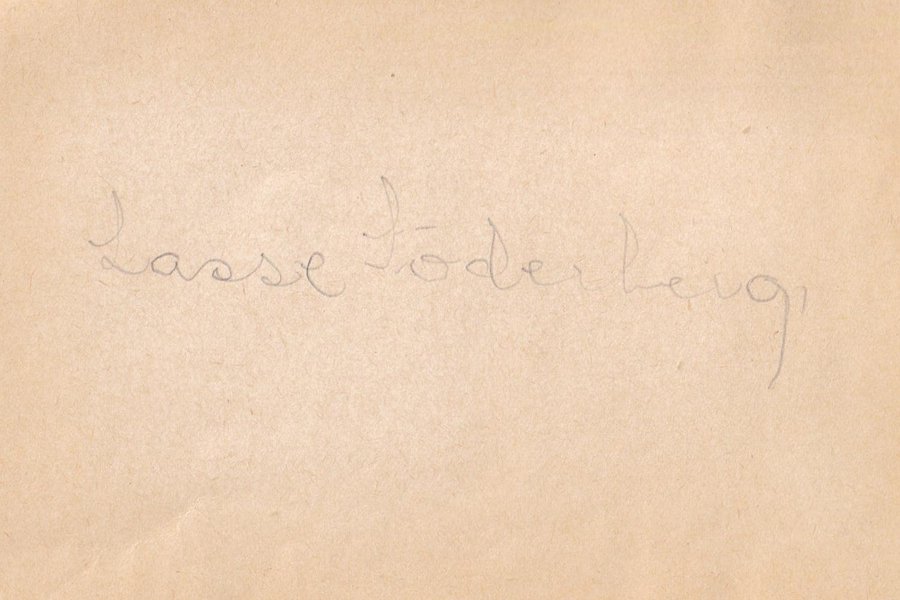 Lasse Söderberg,